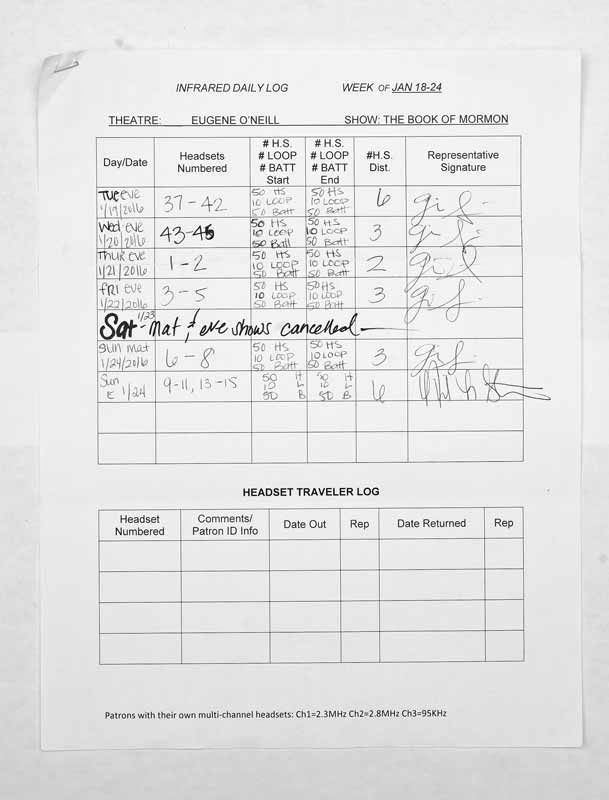 INFRARED DAILY LOG WEEK OF JAN 18-24
THEATRE: EUGENE O'NEILL SHOW: THE BOOK OF MORMON
Day/Date
Headsets
Numbered
# H.S.
# LOOP
# BATT
Start
# H.S.
# LOOP
# BATT
End
#H.S.
Dist.
Representative
Signature
Tue eve
1/19/2016
37-42
50 HS
10 LOOP
50 Batt
50 HS
10 LOOP
50 Batt
6
Wed eve
1/20/2016
43-45
50 HS
10 LOOP
50 Batt
50 HS
10 LOOP
50 Batt
3
Thur eve
1/21/2016
1-2
50 HS
10 LOOP
50 Batt
50 HS
10 LOOP
50 Batt
2
FRI eve
1/22/2016
3-5
50 HS
10 LOOP
50 Batt
50 HS
10 LOOP
50 Batt
3
Sat 1/23 - Mat & eve shows cancelled -
Sun mat
1/24/2016
6-8
50 HS
10 LOOP
50 Batt
50 HS
10 LOOP
50 Batt
3
Sun
E 1/24
9-11, 13-15
50 H
10 L
50 B
50 H
10 L
50 B
6
HEADSET TRAVELER LOG
Headset
Numbered
Comments/
Patron ID Info
Date Out
Rep
Date Returned
Rep
Patrons with their own multi-channel headsets: Ch1=2.3MHz Ch2=2.8MHz Ch3=95KHz